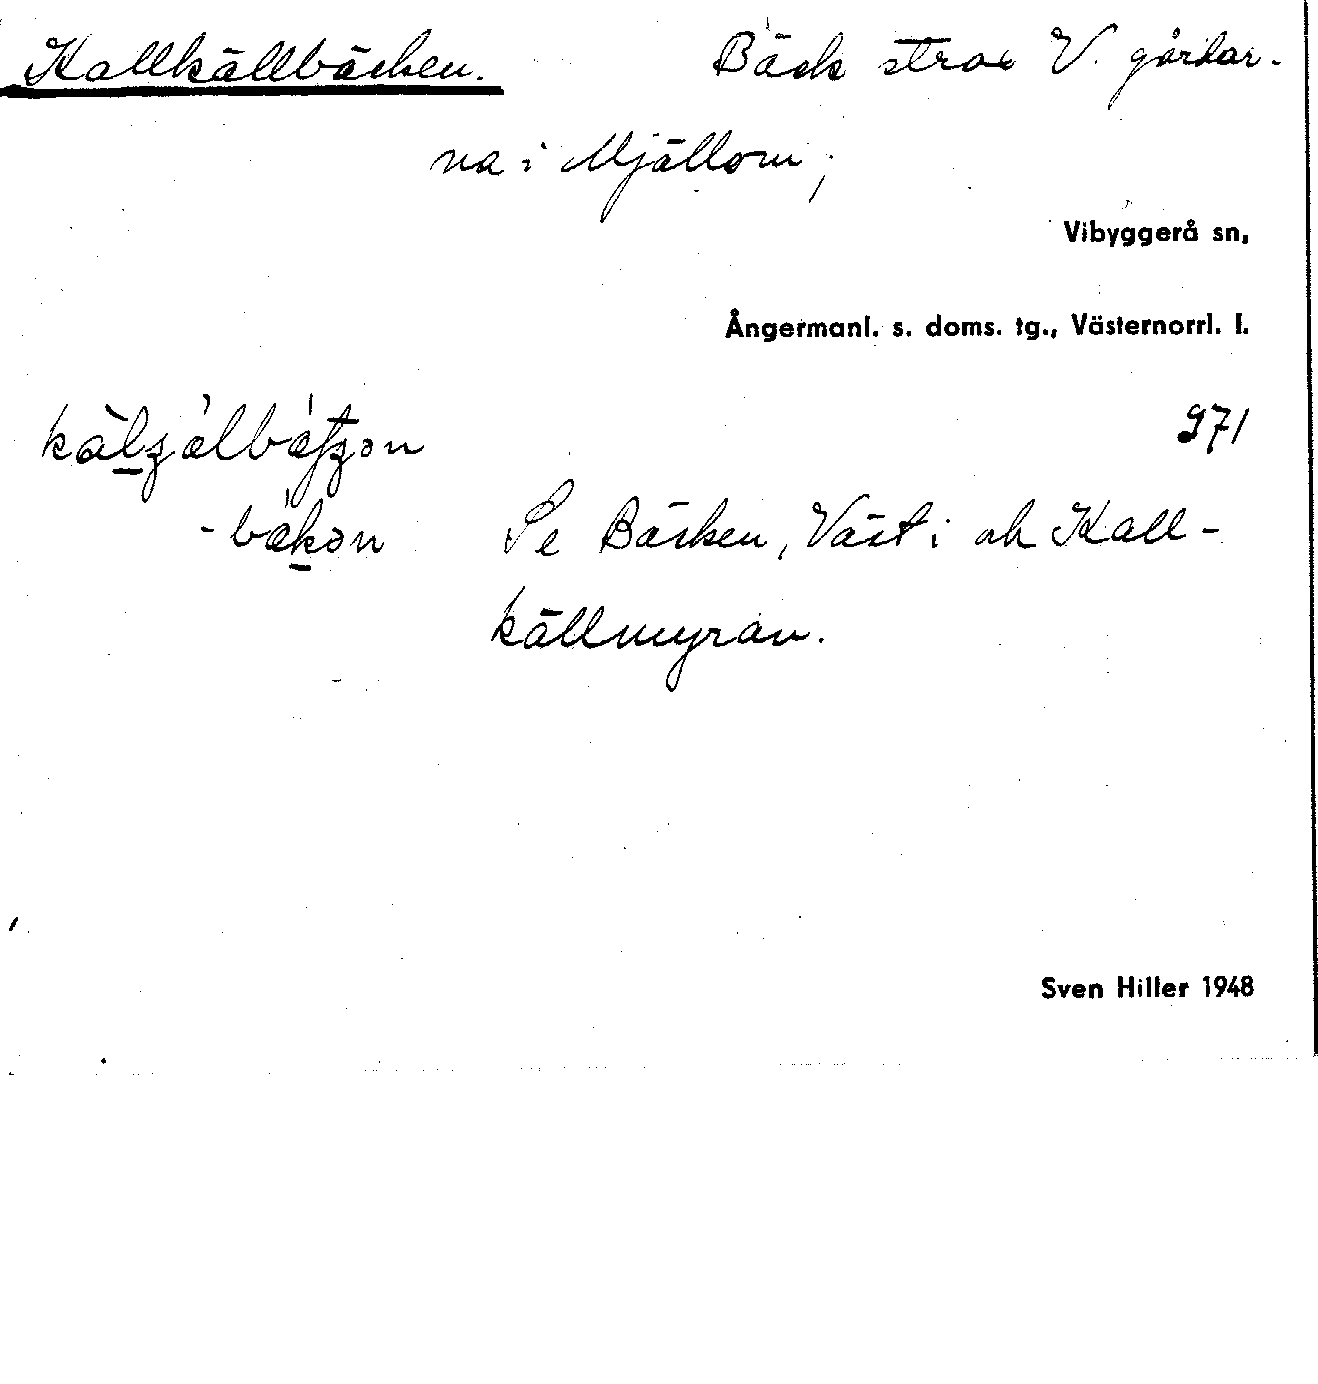 Kallkällbäcken. Bäck strax V. gårdar-
na i Mjällom;
Vibyggerå sn,
Ångermanl. s. doms. tg., Västernorrl. l.
971
Se Bäcken, Väst i och Kall-
källmyran.
Sven Hiller 1948